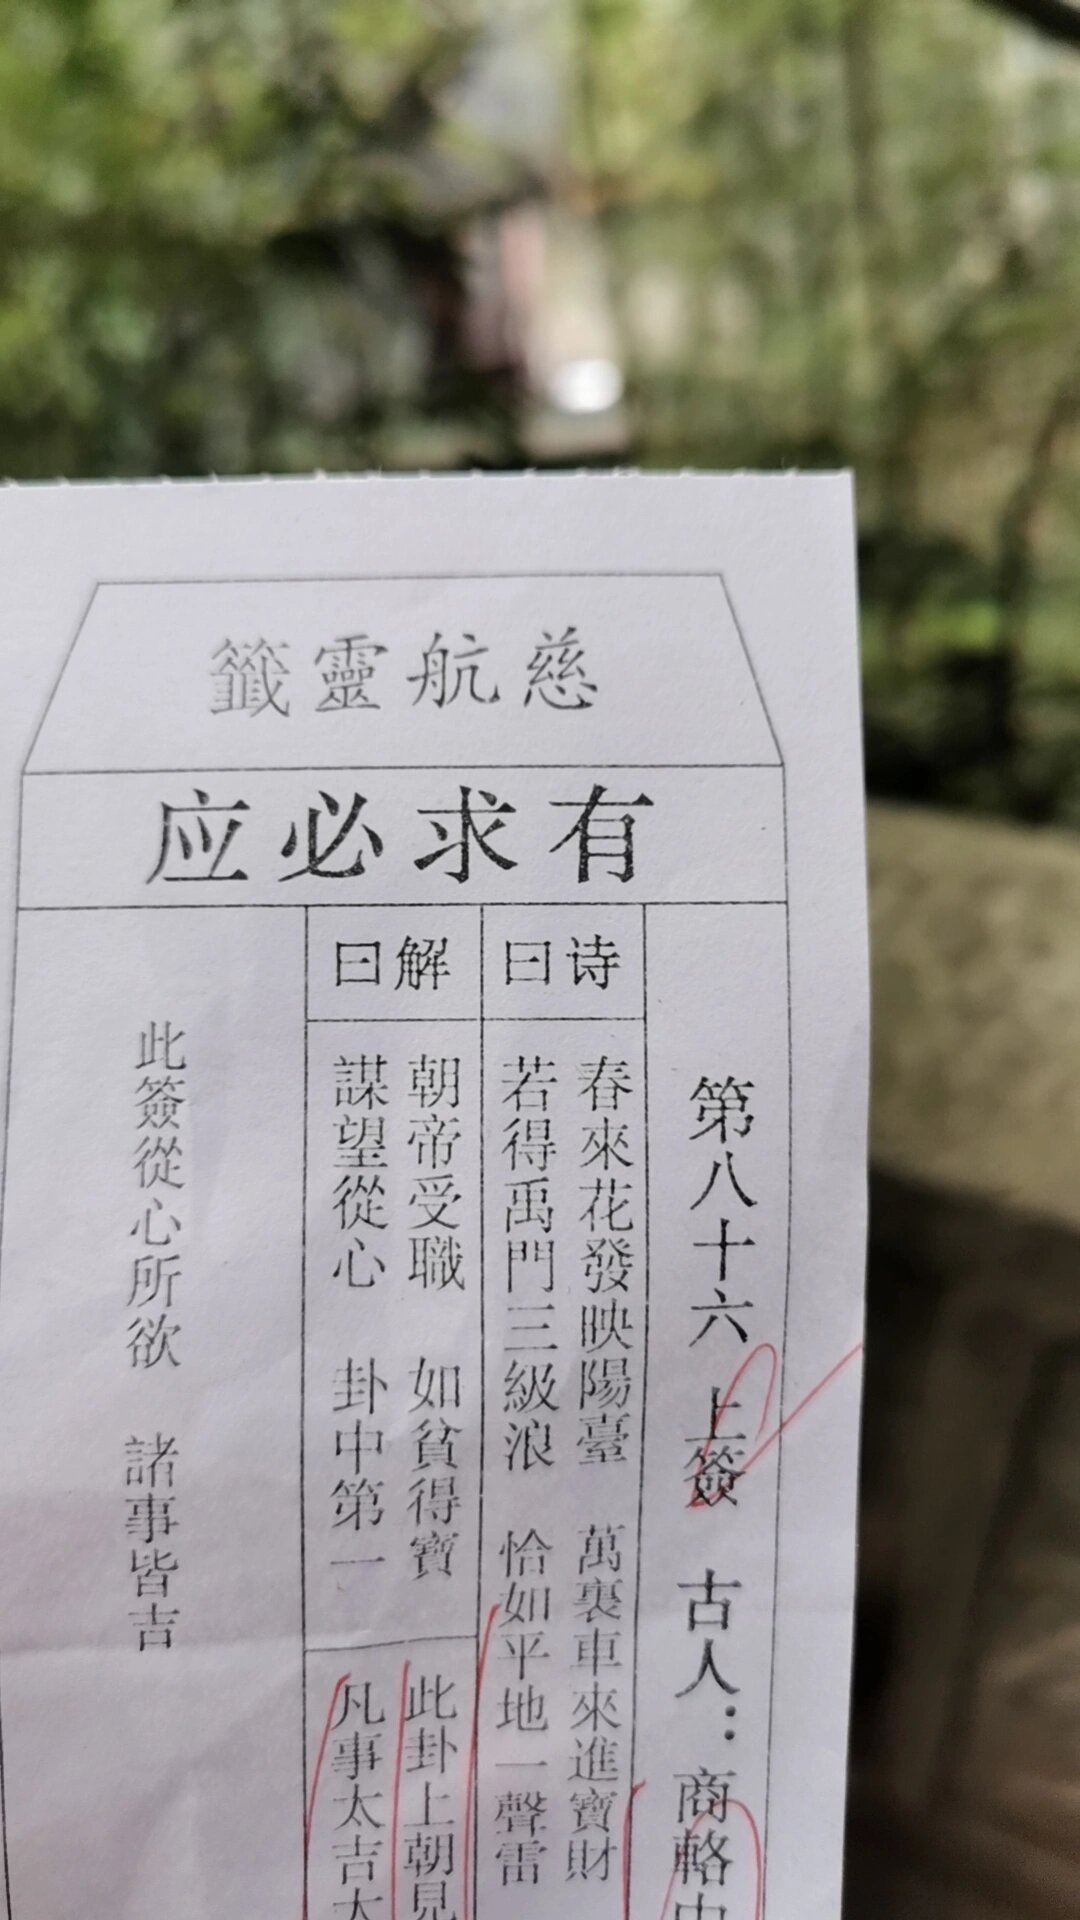 慈航靈籤
有求必应
第八十六 上簽 古人：商輅中
诗曰
春來花發映陽臺 萬裏車來進寶財
若得禹門三級浪 恰如平地一聲雷
解曰
朝帝受職 如貧得寶
謀望從心 卦中第一
此卦上朝見
凡事太吉大
此簽從心所欲 諸事皆吉